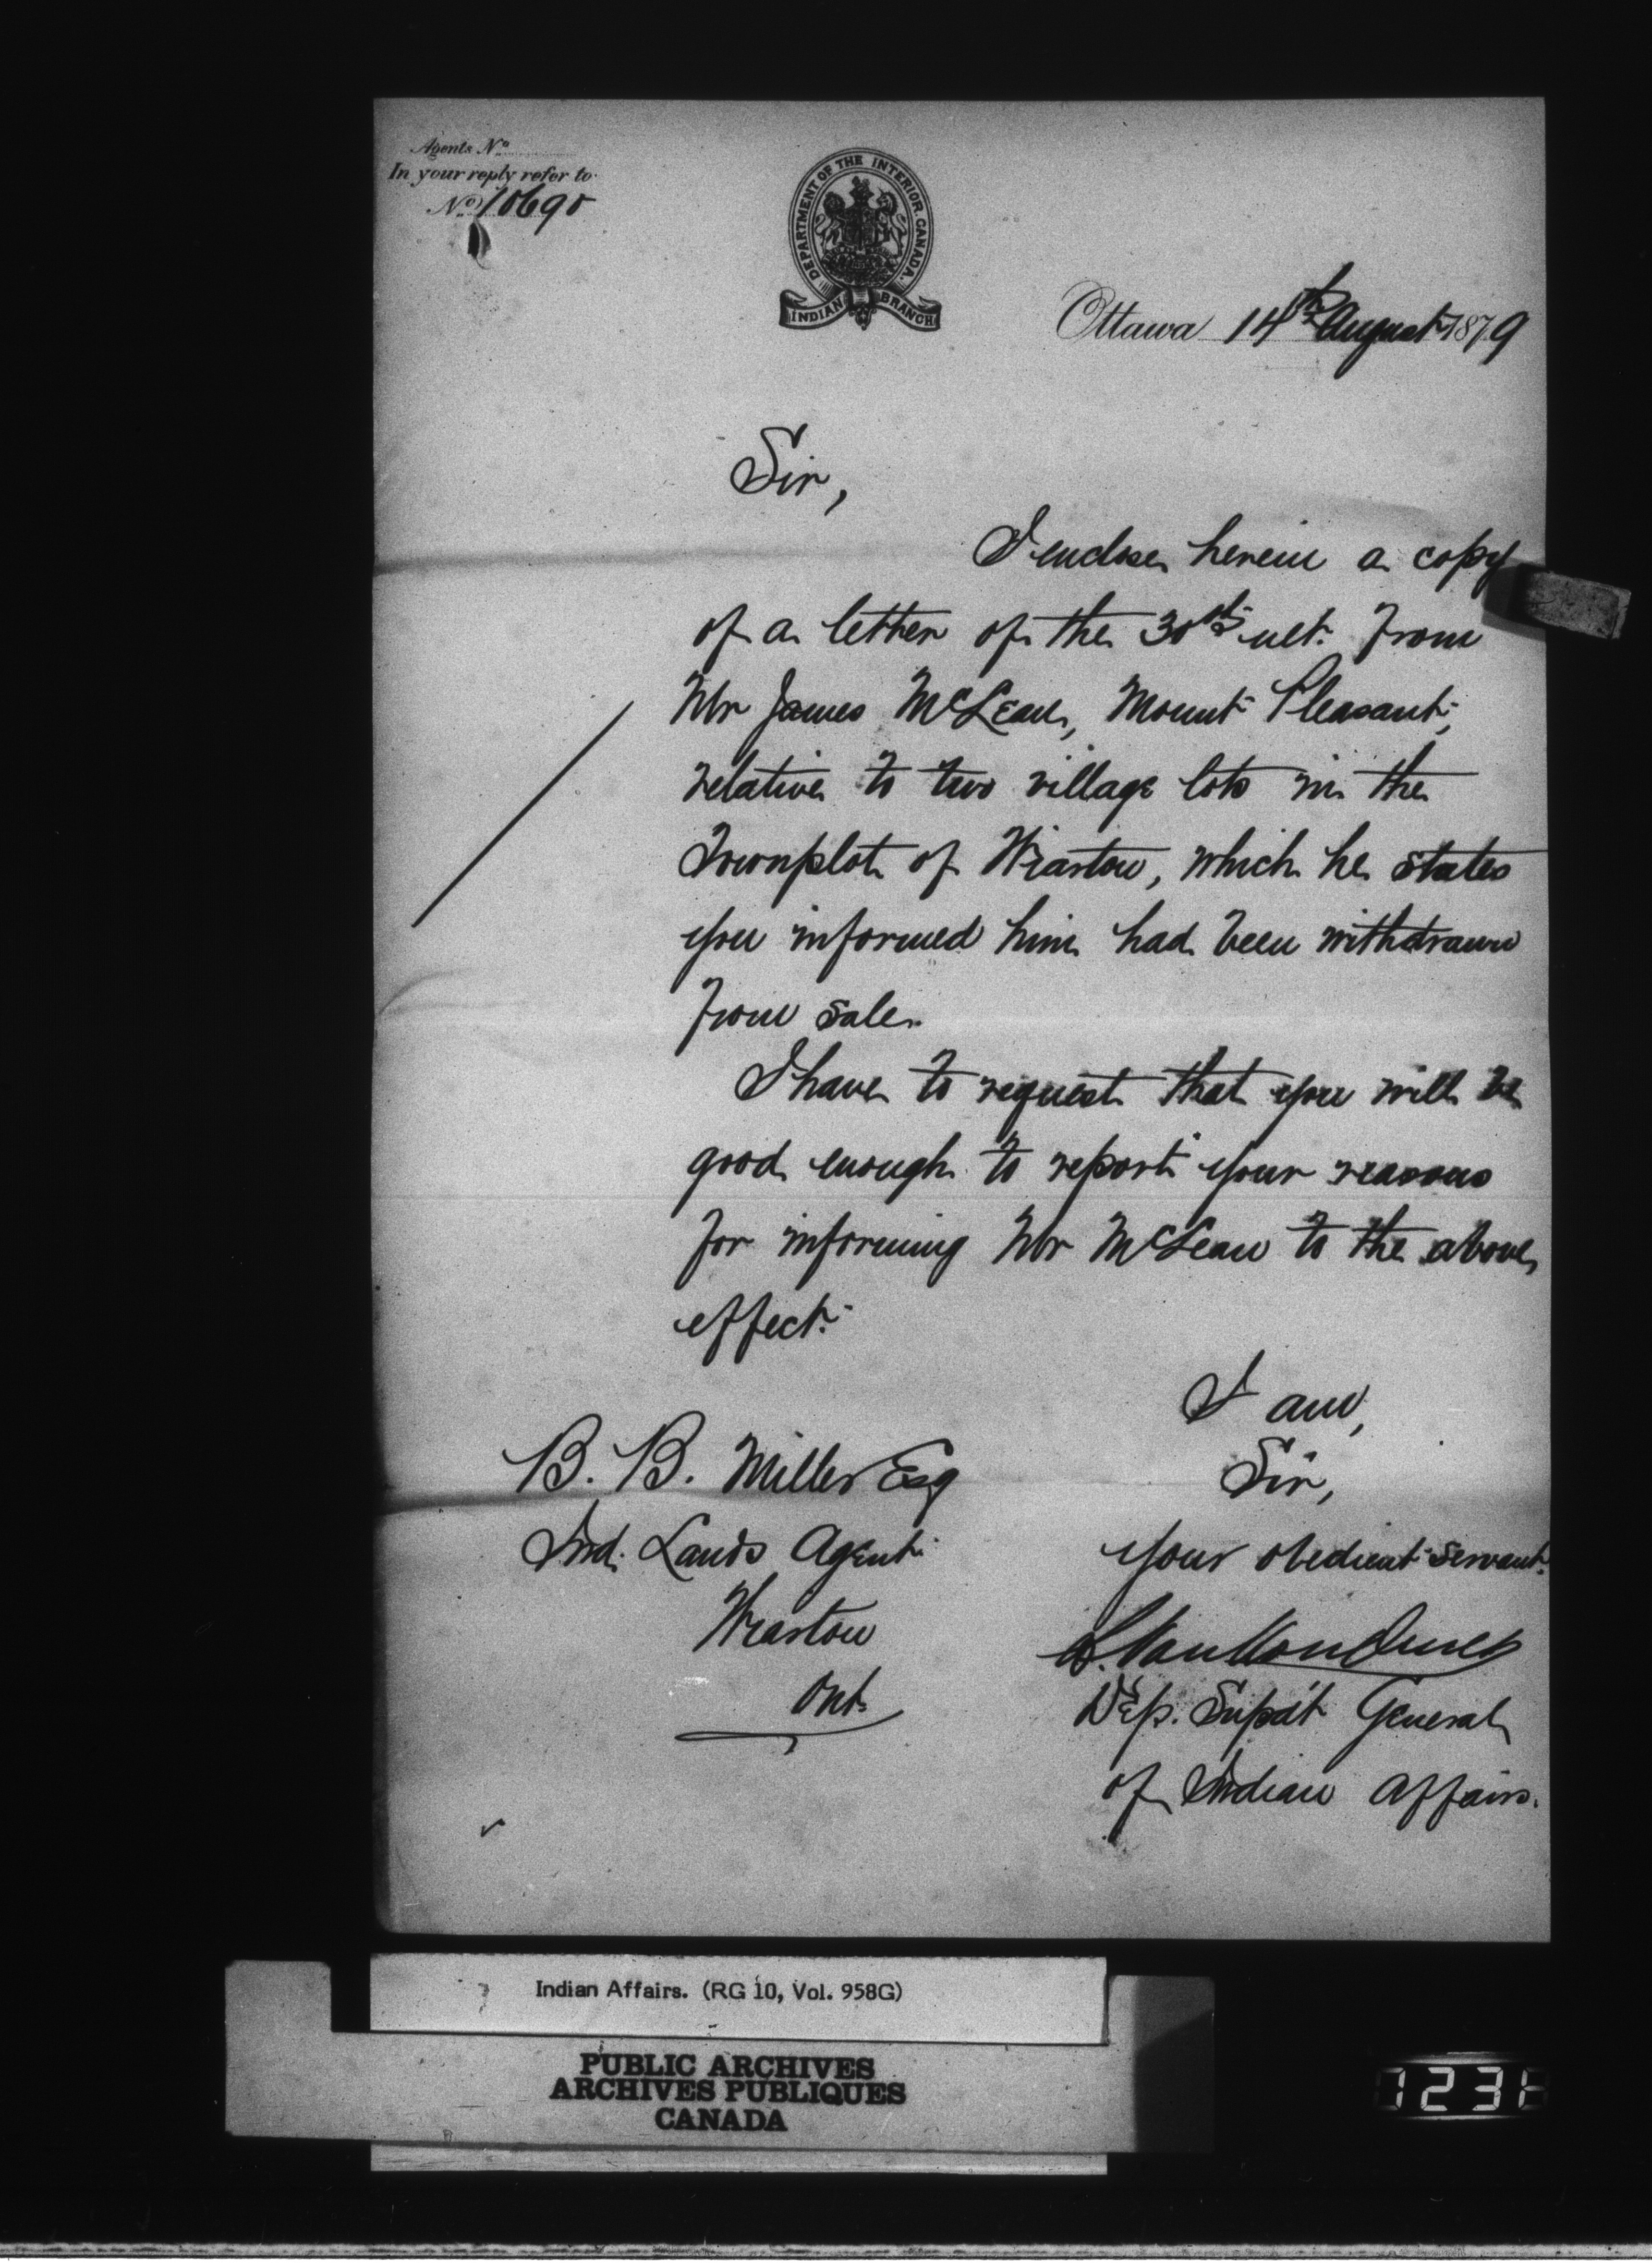 Agents No
In your reply refer to
No 10690
DEPARTMENT OF THE INTERIOR. CANADA.
INDIAN BRANCH
Ottawa 14th August 1879
Sir,
I enclose herein a copy
of a letter of the 30th ult. from
Mr James McLean, Mount Pleasant,
relative to two village lots in the
Townplot of Wiarton, which he states
you informed him had been withdrawn
from sale.
I have to request that you will be
good enough to report your reasons
for informing Mr McLean to the above
effect.
I am,
Sir,
Your obedient servant
L. VanKoughnet
Dep. Supdt General
of Indian Affairs.
B. B. Miller Esq
Ind. Lands Agent
Wiarton
Ont.
Indian Affairs. (RG 10, Vol. 958G)
PUBLIC ARCHIVES
ARCHIVES PUBLIQUES
CANADA